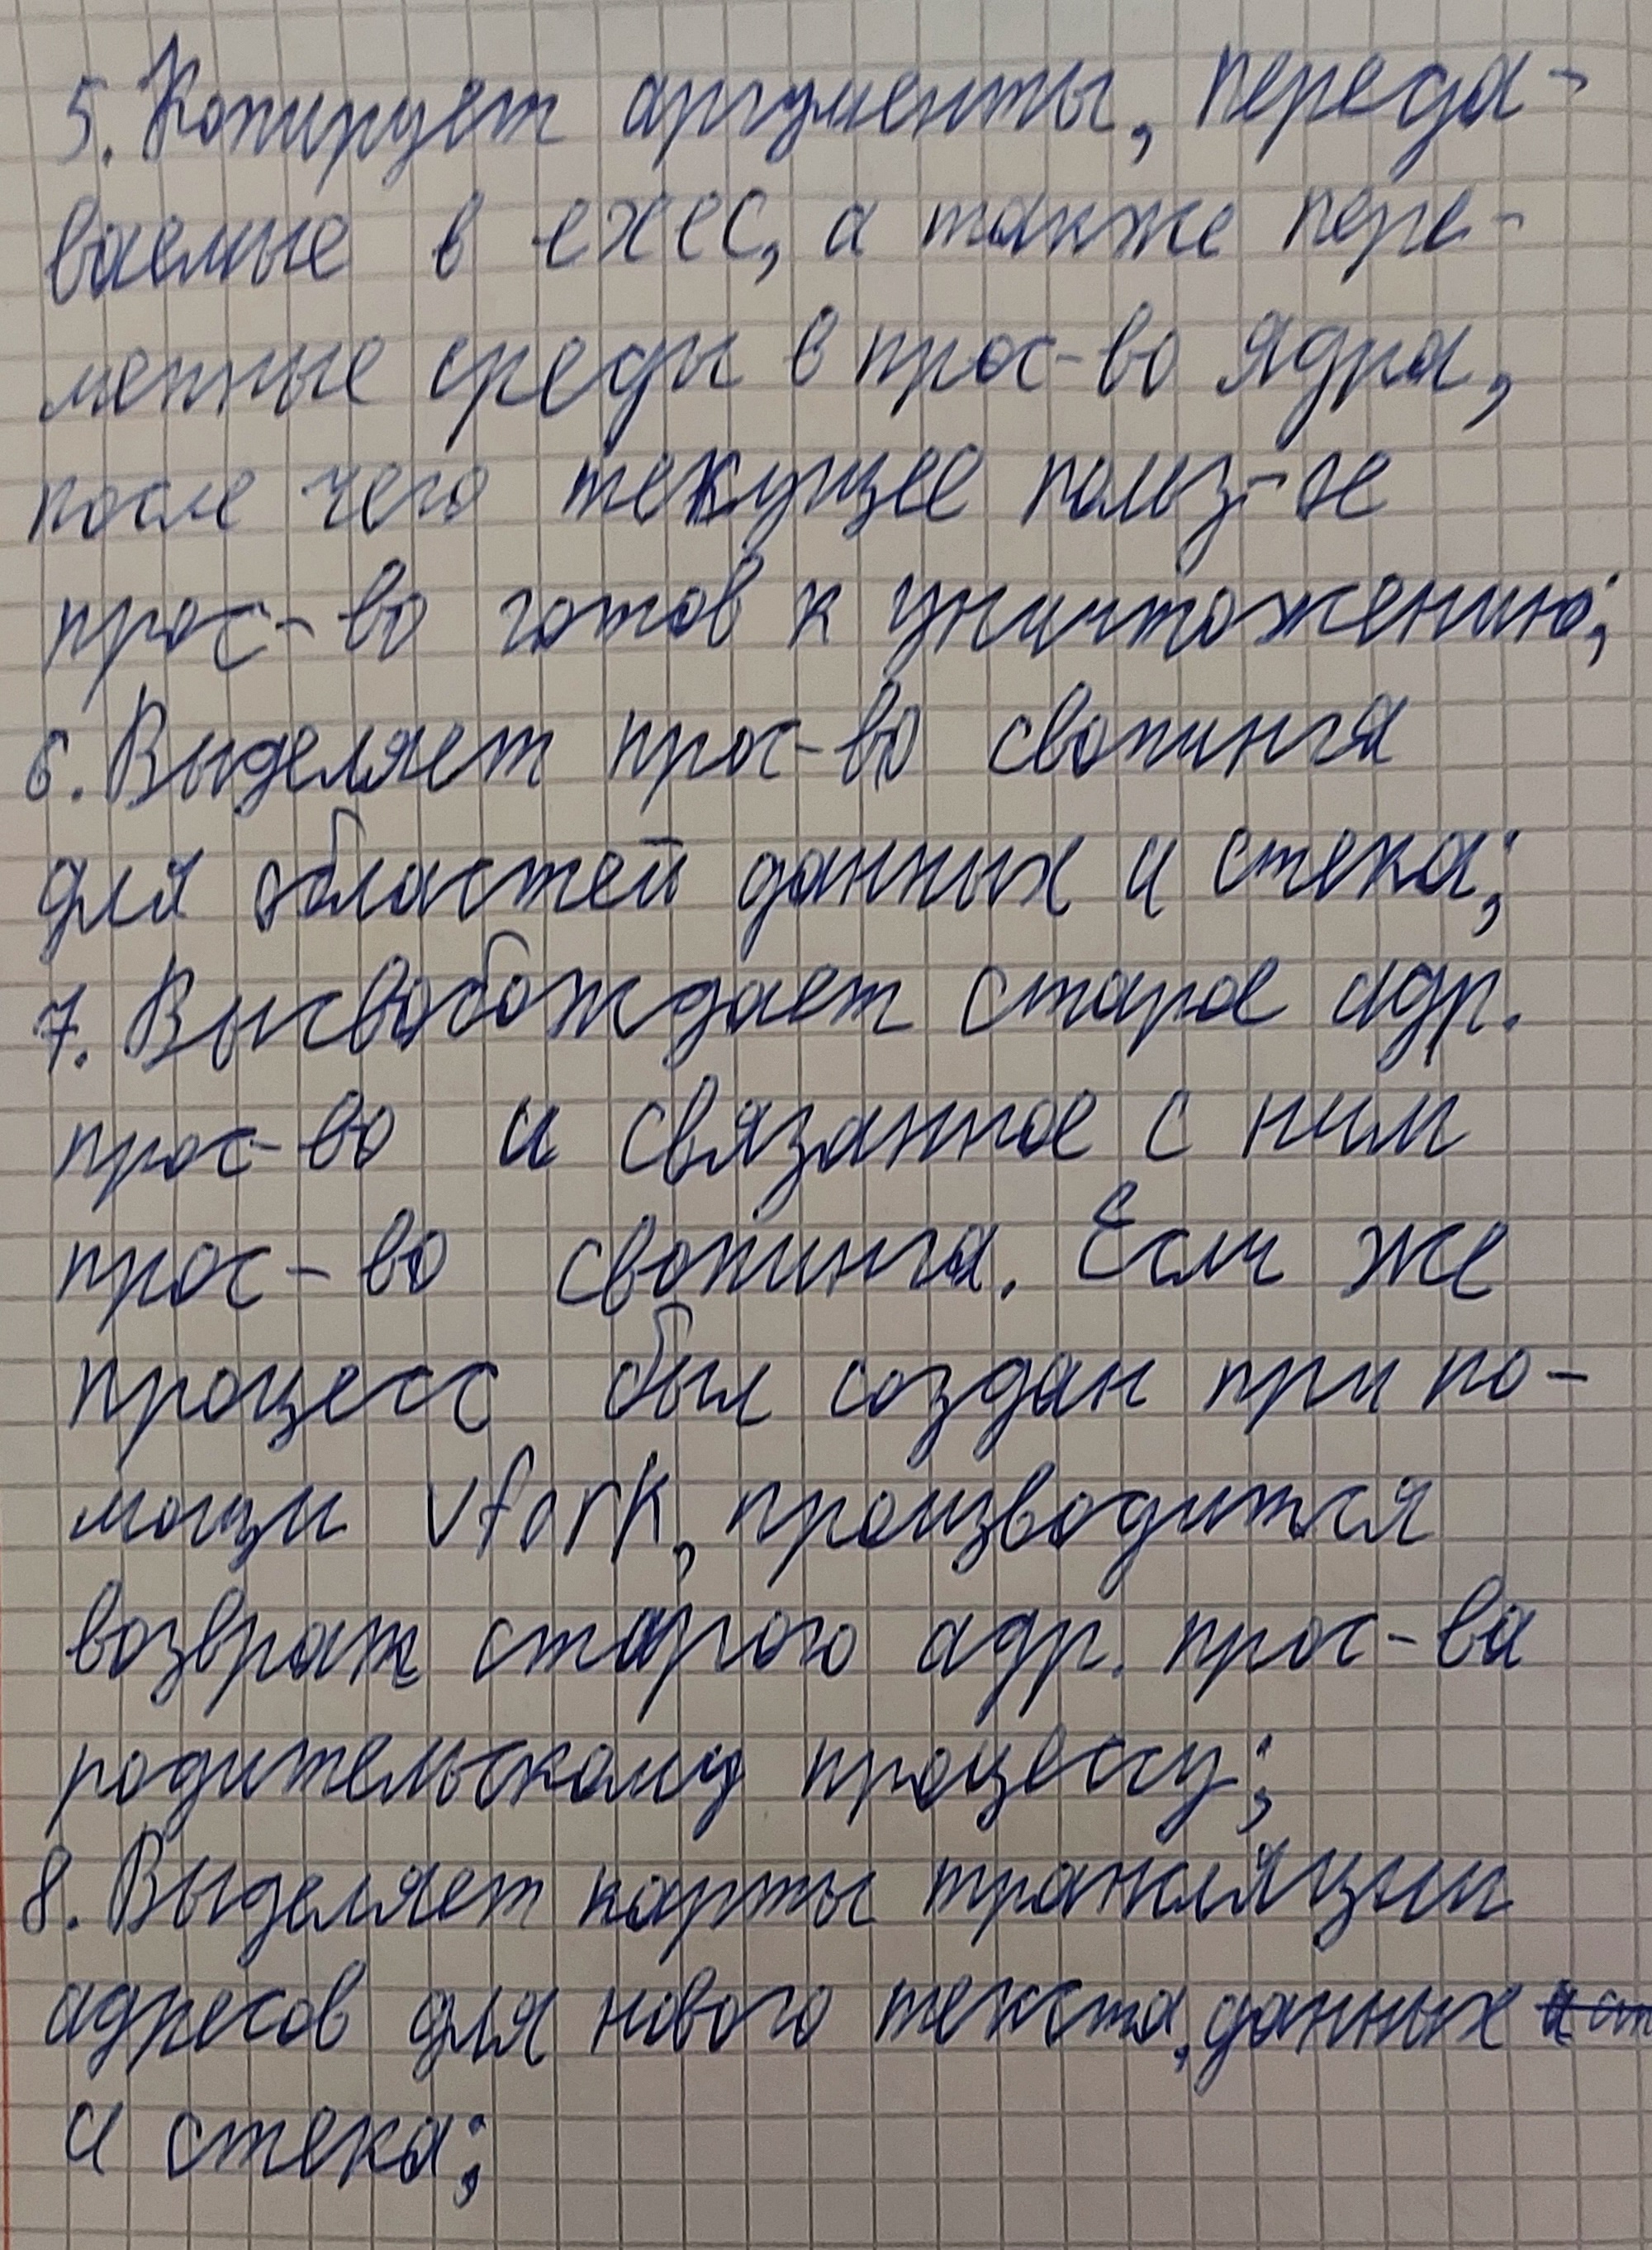 5. Копирует аргументы, переда-
ваемые в exec, а также пере-
менные среды в прос-во ядра,
после чего текущее польз-ое
прос-во готов к уничтожению;
6. Выделяет прос-во свопинга
для областей данных и стека;
7. Высвобождает старое адр.
прос-во и связанное с ним
прос-во свопинга. Если же
процесс был создан при по-
мощи vfork, производится
возврат старого адр. прос-ва
родительскому процессу;
8. Выделяет карты трансляции
адресов для нового текста, данных и ст
и стека;